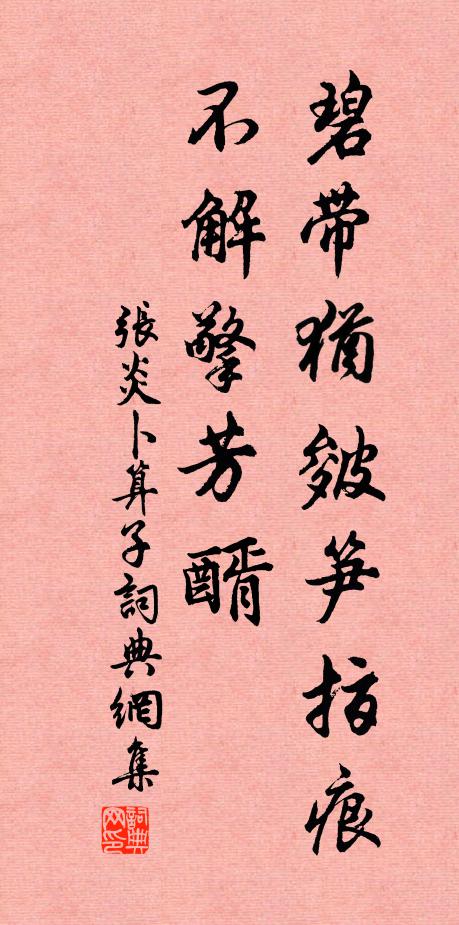 碧帶猶皺笋指痕
不解擎芳醑
張炎卜算子詞典網集
詞典网印